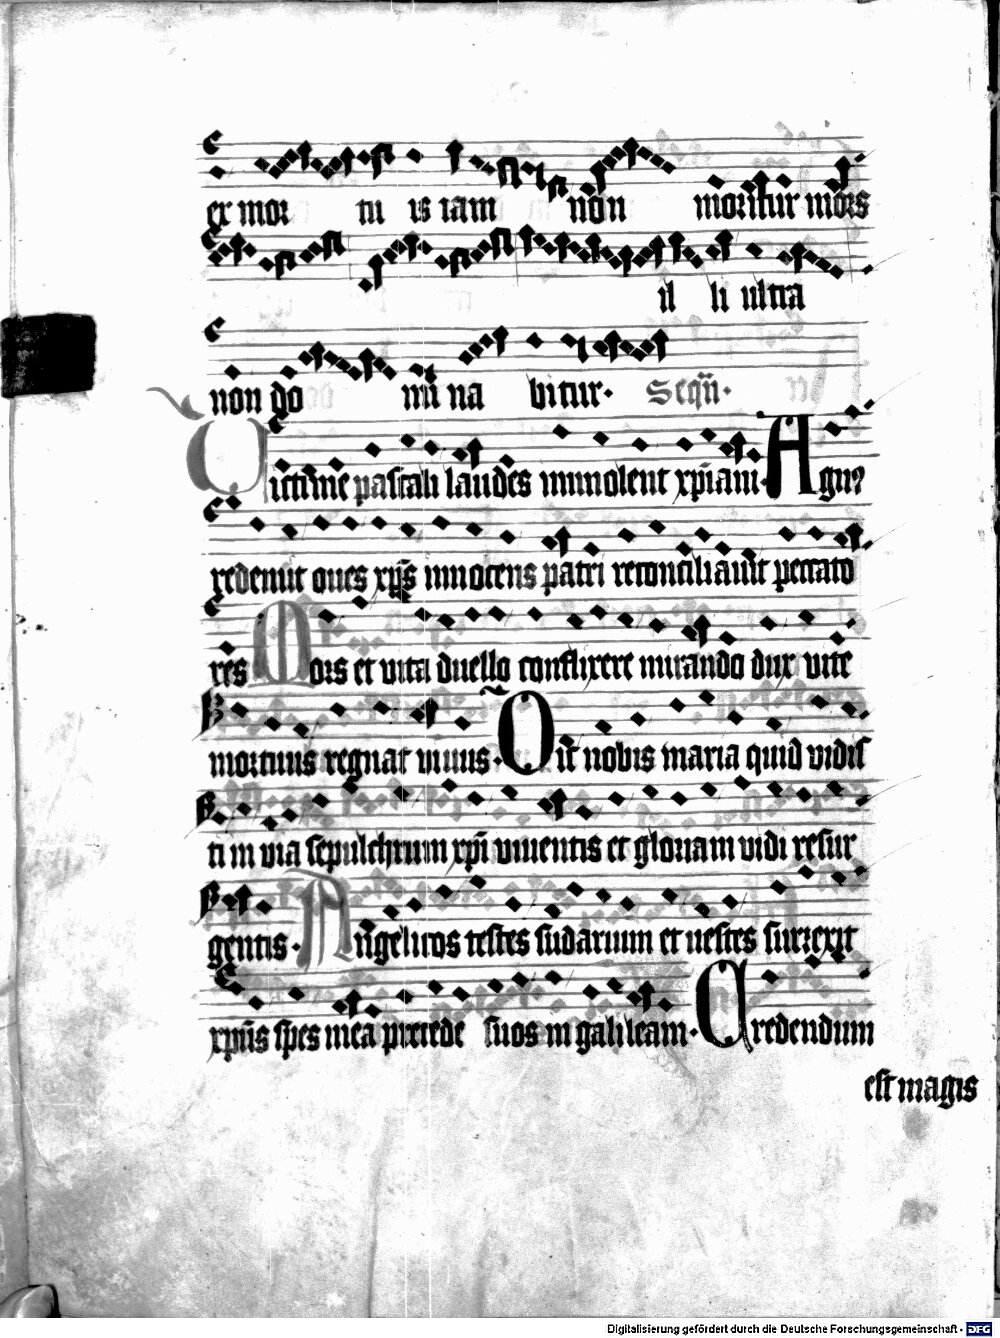 ex mor tu is iam non moritur mors
il li ultra
non do mi na bitur · Seqn̄ ·
Victime pascali laudes immolent xpiani · Agnꝰ
redemit oues xps̄ innocens patri reconciliauit peccato
res Mors et vita duello conflixere mirando dux vite
mortuus regnat viuus · Dic nobis maria quid vidis
ti in via sepulchrum xpi viuentis et gloriam vidi resur
gentis · Angelicos testes sudarium et uestes surrexit
xpūs spes mea precede suos in galileam · Credendum
est magis
Digitalisierung gefördert durch die Deutsche Forschungsgemeinschaft - DFG